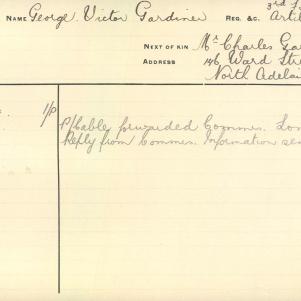 3rd
NAME George Victor Gardiner REG. &C. Artil
NEXT OF KIN Mr Charles Ga
ADDRESS 146 Ward Stre
North Adelai
1/P
P/Cable forwarded Commn. Lon
Reply from Commn. Information sen